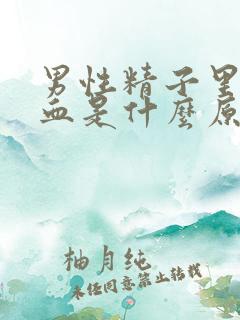 男性精子里
血是什麼原
柚月纯
未经同意禁止转载